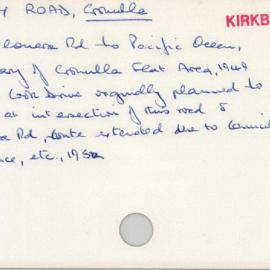 Y ROAD, Cronulla
KIRKB
lonera Rd to Pacific Ocean,
ary of Cronulla Flat Area, 1949
Cook Drive originally planned to
at intersection of this road &
Rd, route extended due to Council
nce, etc.,